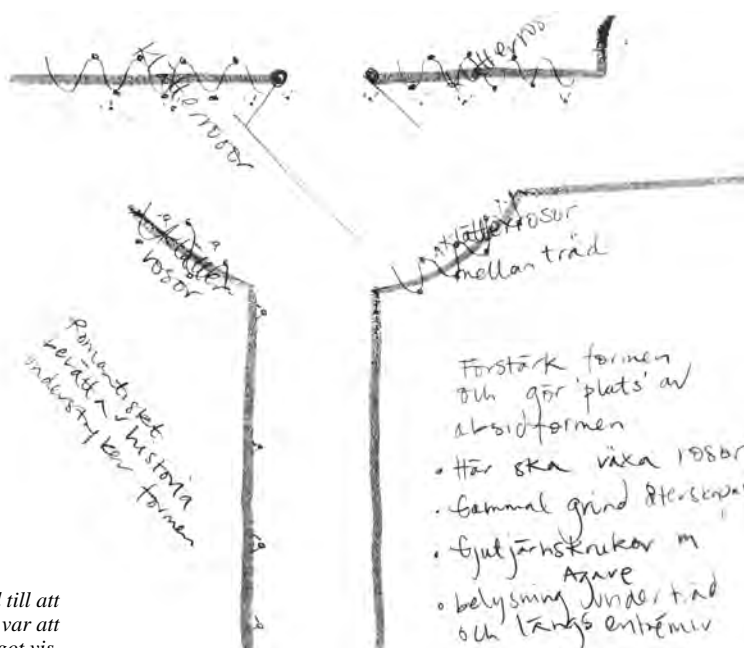 Klätterrosor
Klätterros
Klätter
rosor
Klätterrosor
mellan träd
Romantiskt
berätta historia
understryker formen
Förstärk formen
och gör 'plats' av
absidformen
• Här ska växa rosor
• Gammal grind återskapa
• Gjutjärnskrukor m
Agave
• belysning under träd
och längs entrémur
l till att
var att
got vis